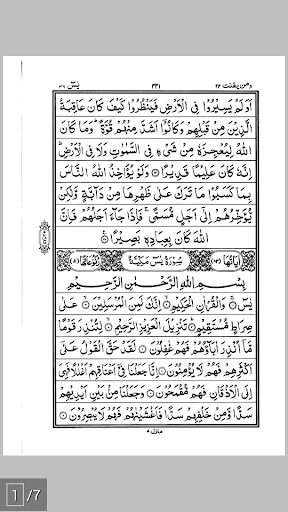 ومن يقنت ٢٢ ٤٤١ يٰسٓ ٣٦
اَوَلَمْ يَسِيْرُوْا فِي الْاَرْضِ فَيَنْظُرُوْا كَيْفَ كَانَ عَاقِبَةُ
الَّذِيْنَ مِنْ قَبْلِهِمْ وَكَانُوْٓا اَشَدَّ مِنْهُمْ قُوَّةً ؕ وَمَا كَانَ
اللّٰهُ لِيُعْجِزَهٗ مِنْ شَيْءٍ فِي السَّمٰوٰتِ وَلَا فِي الْاَرْضِ ؕ
اِنَّهٗ كَانَ عَلِيْمًا قَدِيْرًا ۝ وَلَوْ يُؤَاخِذُ اللّٰهُ النَّاسَ
بِمَا كَسَبُوْا مَا تَرَكَ عَلٰى ظَهْرِهَا مِنْ دَآبَّةٍ وَّلٰكِنْ
يُّؤَخِّرُهُمْ اِلٰٓى اَجَلٍ مُّسَمًّى ۚ فَاِذَا جَآءَ اَجَلُهُمْ فَاِنَّ
اللّٰهَ كَانَ بِعِبَادِهٖ بَصِيْرًا ۝
اٰيَاتُهَا ٨٣ سُوْرَةُ يٰسٓ مَكِّيَّةٌ رُكُوْعَاتُهَا ٥
بِسْمِ اللّٰهِ الرَّحْمٰنِ الرَّحِيْمِ
يٰسٓ ۝ وَالْقُرْاٰنِ الْحَكِيْمِ ۝ اِنَّكَ لَمِنَ الْمُرْسَلِيْنَ ۝ عَلٰى
صِرَاطٍ مُّسْتَقِيْمٍ ۝ تَنْزِيْلَ الْعَزِيْزِ الرَّحِيْمِ ۝ لِتُنْذِرَ قَوْمًا
مَّآ اُنْذِرَ اٰبَآؤُهُمْ فَهُمْ غٰفِلُوْنَ ۝ لَقَدْ حَقَّ الْقَوْلُ عَلٰٓى
اَكْثَرِهِمْ فَهُمْ لَا يُؤْمِنُوْنَ ۝ اِنَّا جَعَلْنَا فِيْٓ اَعْنَاقِهِمْ اَغْلٰلًا فَهِيَ
اِلَى الْاَذْقَانِ فَهُمْ مُّقْمَحُوْنَ ۝ وَجَعَلْنَا مِنْ بَيْنِ اَيْدِيْهِمْ
سَدًّا وَّمِنْ خَلْفِهِمْ سَدًّا فَاَغْشَيْنٰهُمْ فَهُمْ لَا يُبْصِرُوْنَ ۝
منزل ٥
1 /7